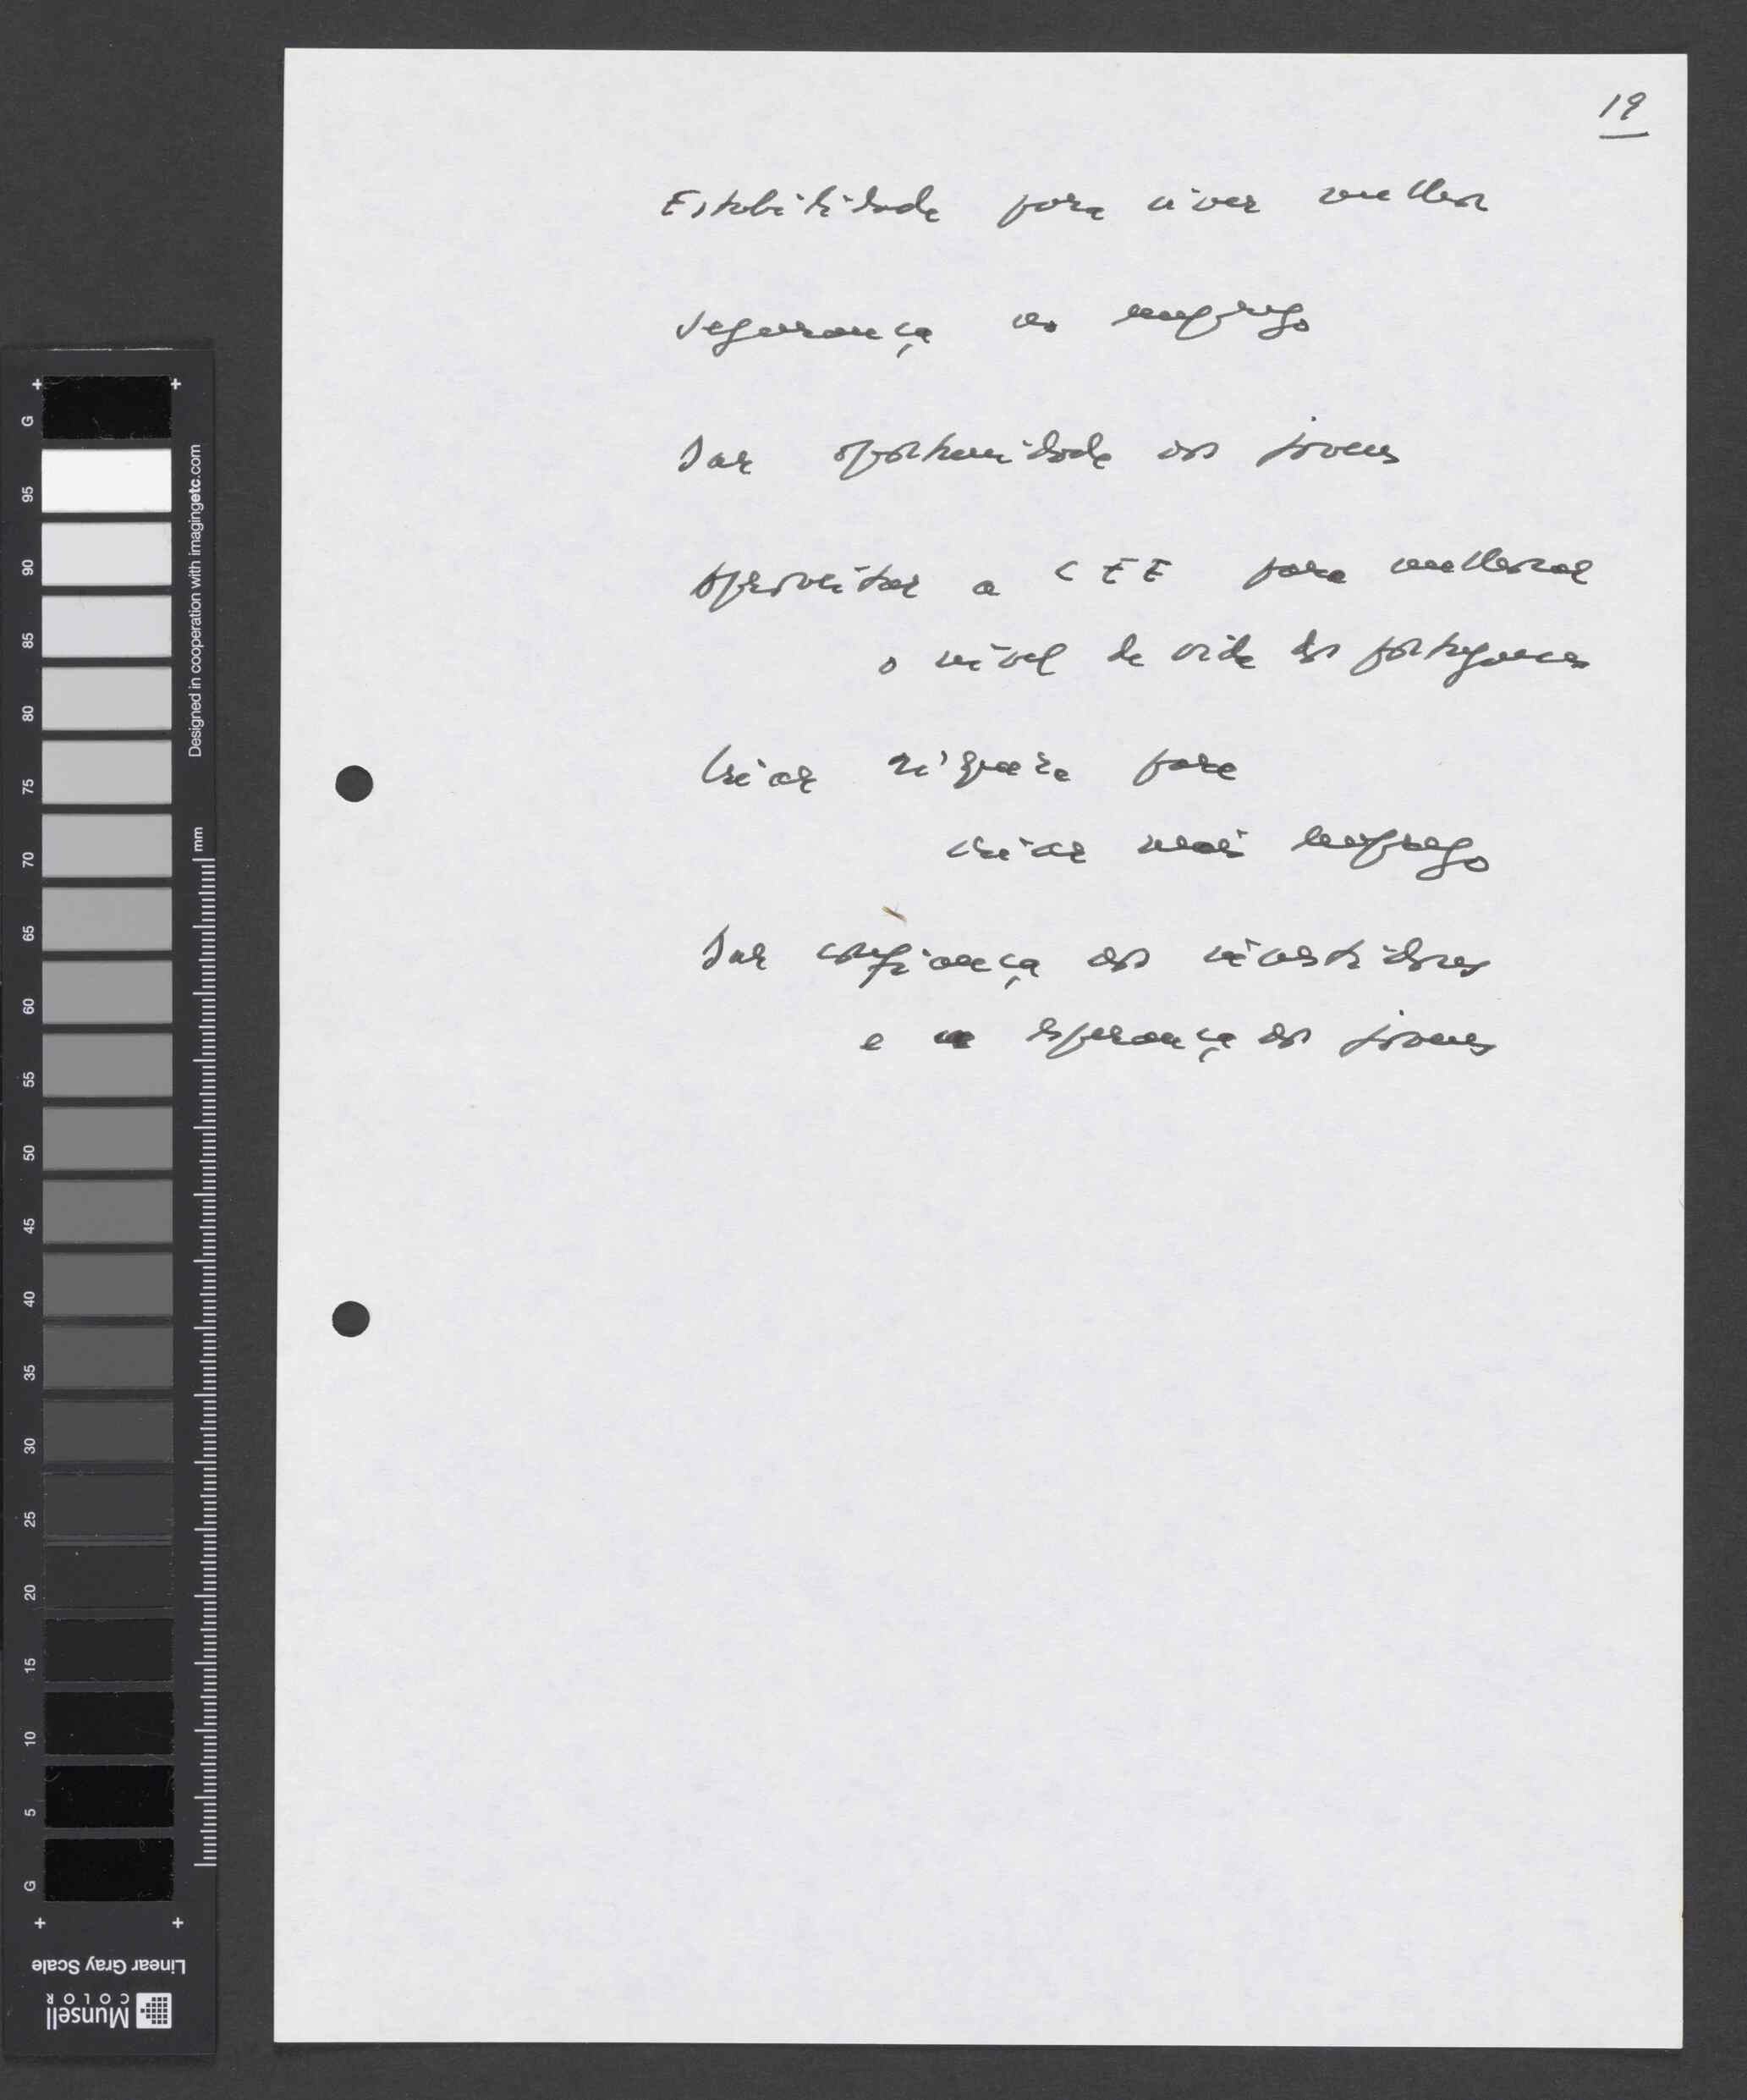 19
Estabilidade para viver melhor
Segurança no emprego
Dar oportunidade aos jovens
Aproveitar a CEE para melhorar
o nível de vida dos portugueses
Criar riqueza para
criar mais emprego
Dar confiança aos investidores
e esperança aos jovens
G
95
90
85
80
75
70
65
60
55
50
45
40
35
30
25
20
15
10
5
G
Designed in cooperation with imagingetc.com
mm
Linear Gray Scale
Munsell
COLOR